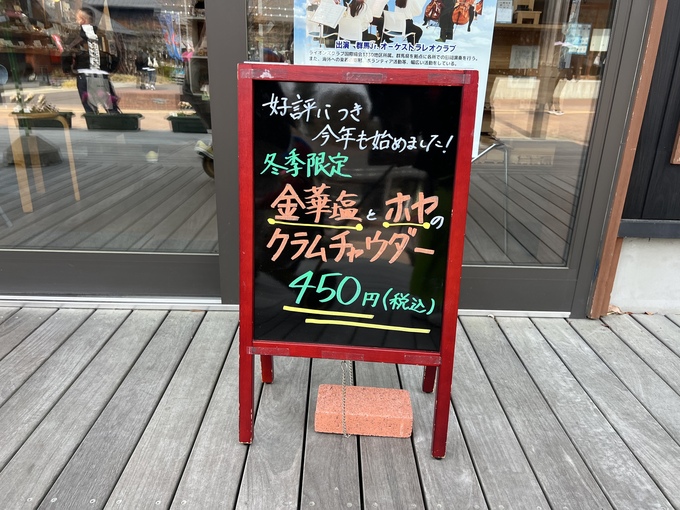 出演「群馬Jr.オーケストラレオクラブ
好評につき
今年も始めました!
冬季限定
金華塩とホヤの
クラムチャウダー
450円(税込)